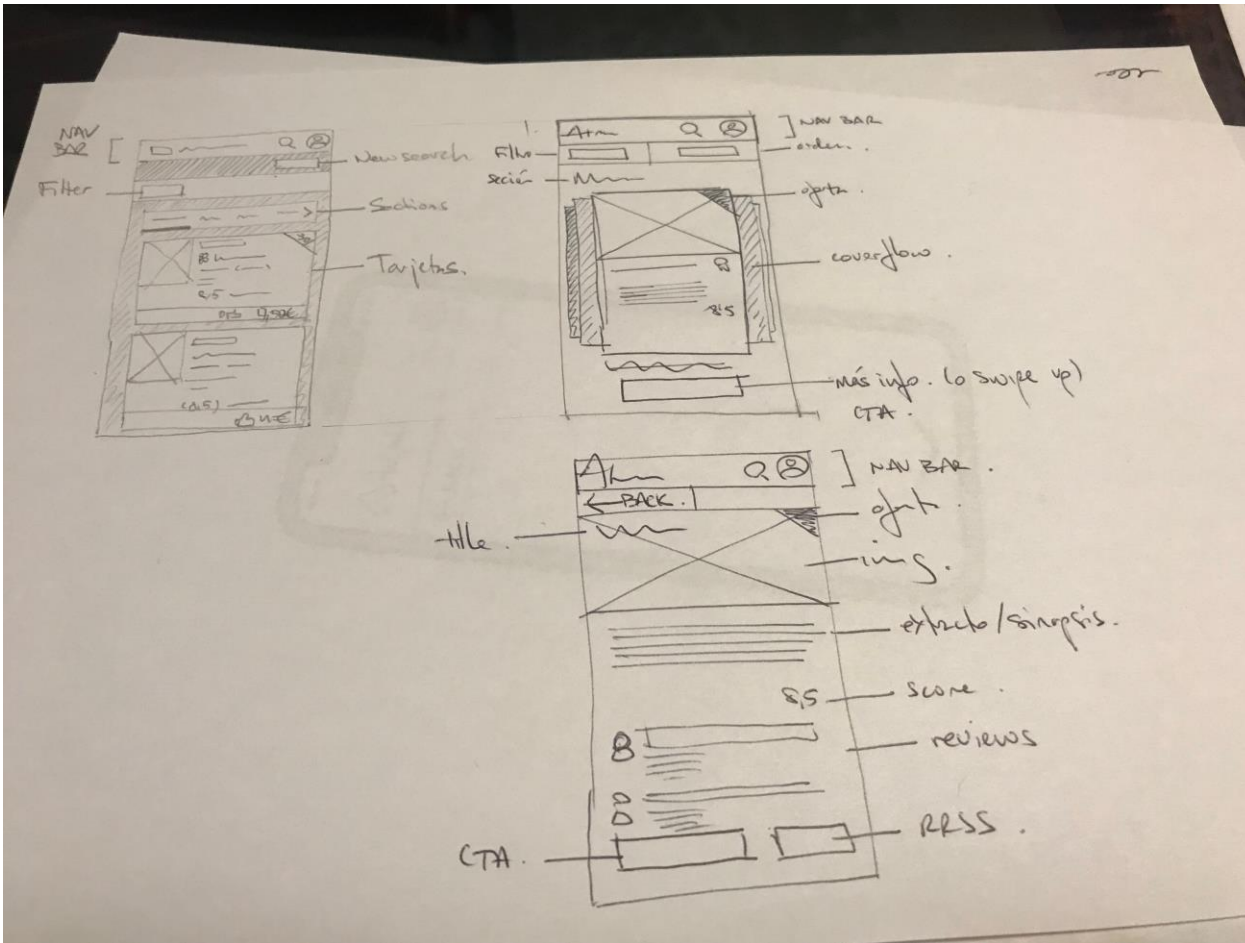 NAV
BAR
New search
Filter
Sections
Tarjetas.
8,5
(8,5)
NAV BAR
Filtro
orden.
sección
oferta.
coverflow.
8,5
más info. (o swipe up)
CTA.
NAV BAR.
← BACK.
title.
oferta.
img.
extracto/sinopsis.
8,5
score.
reviews
CTA.
RRSS.